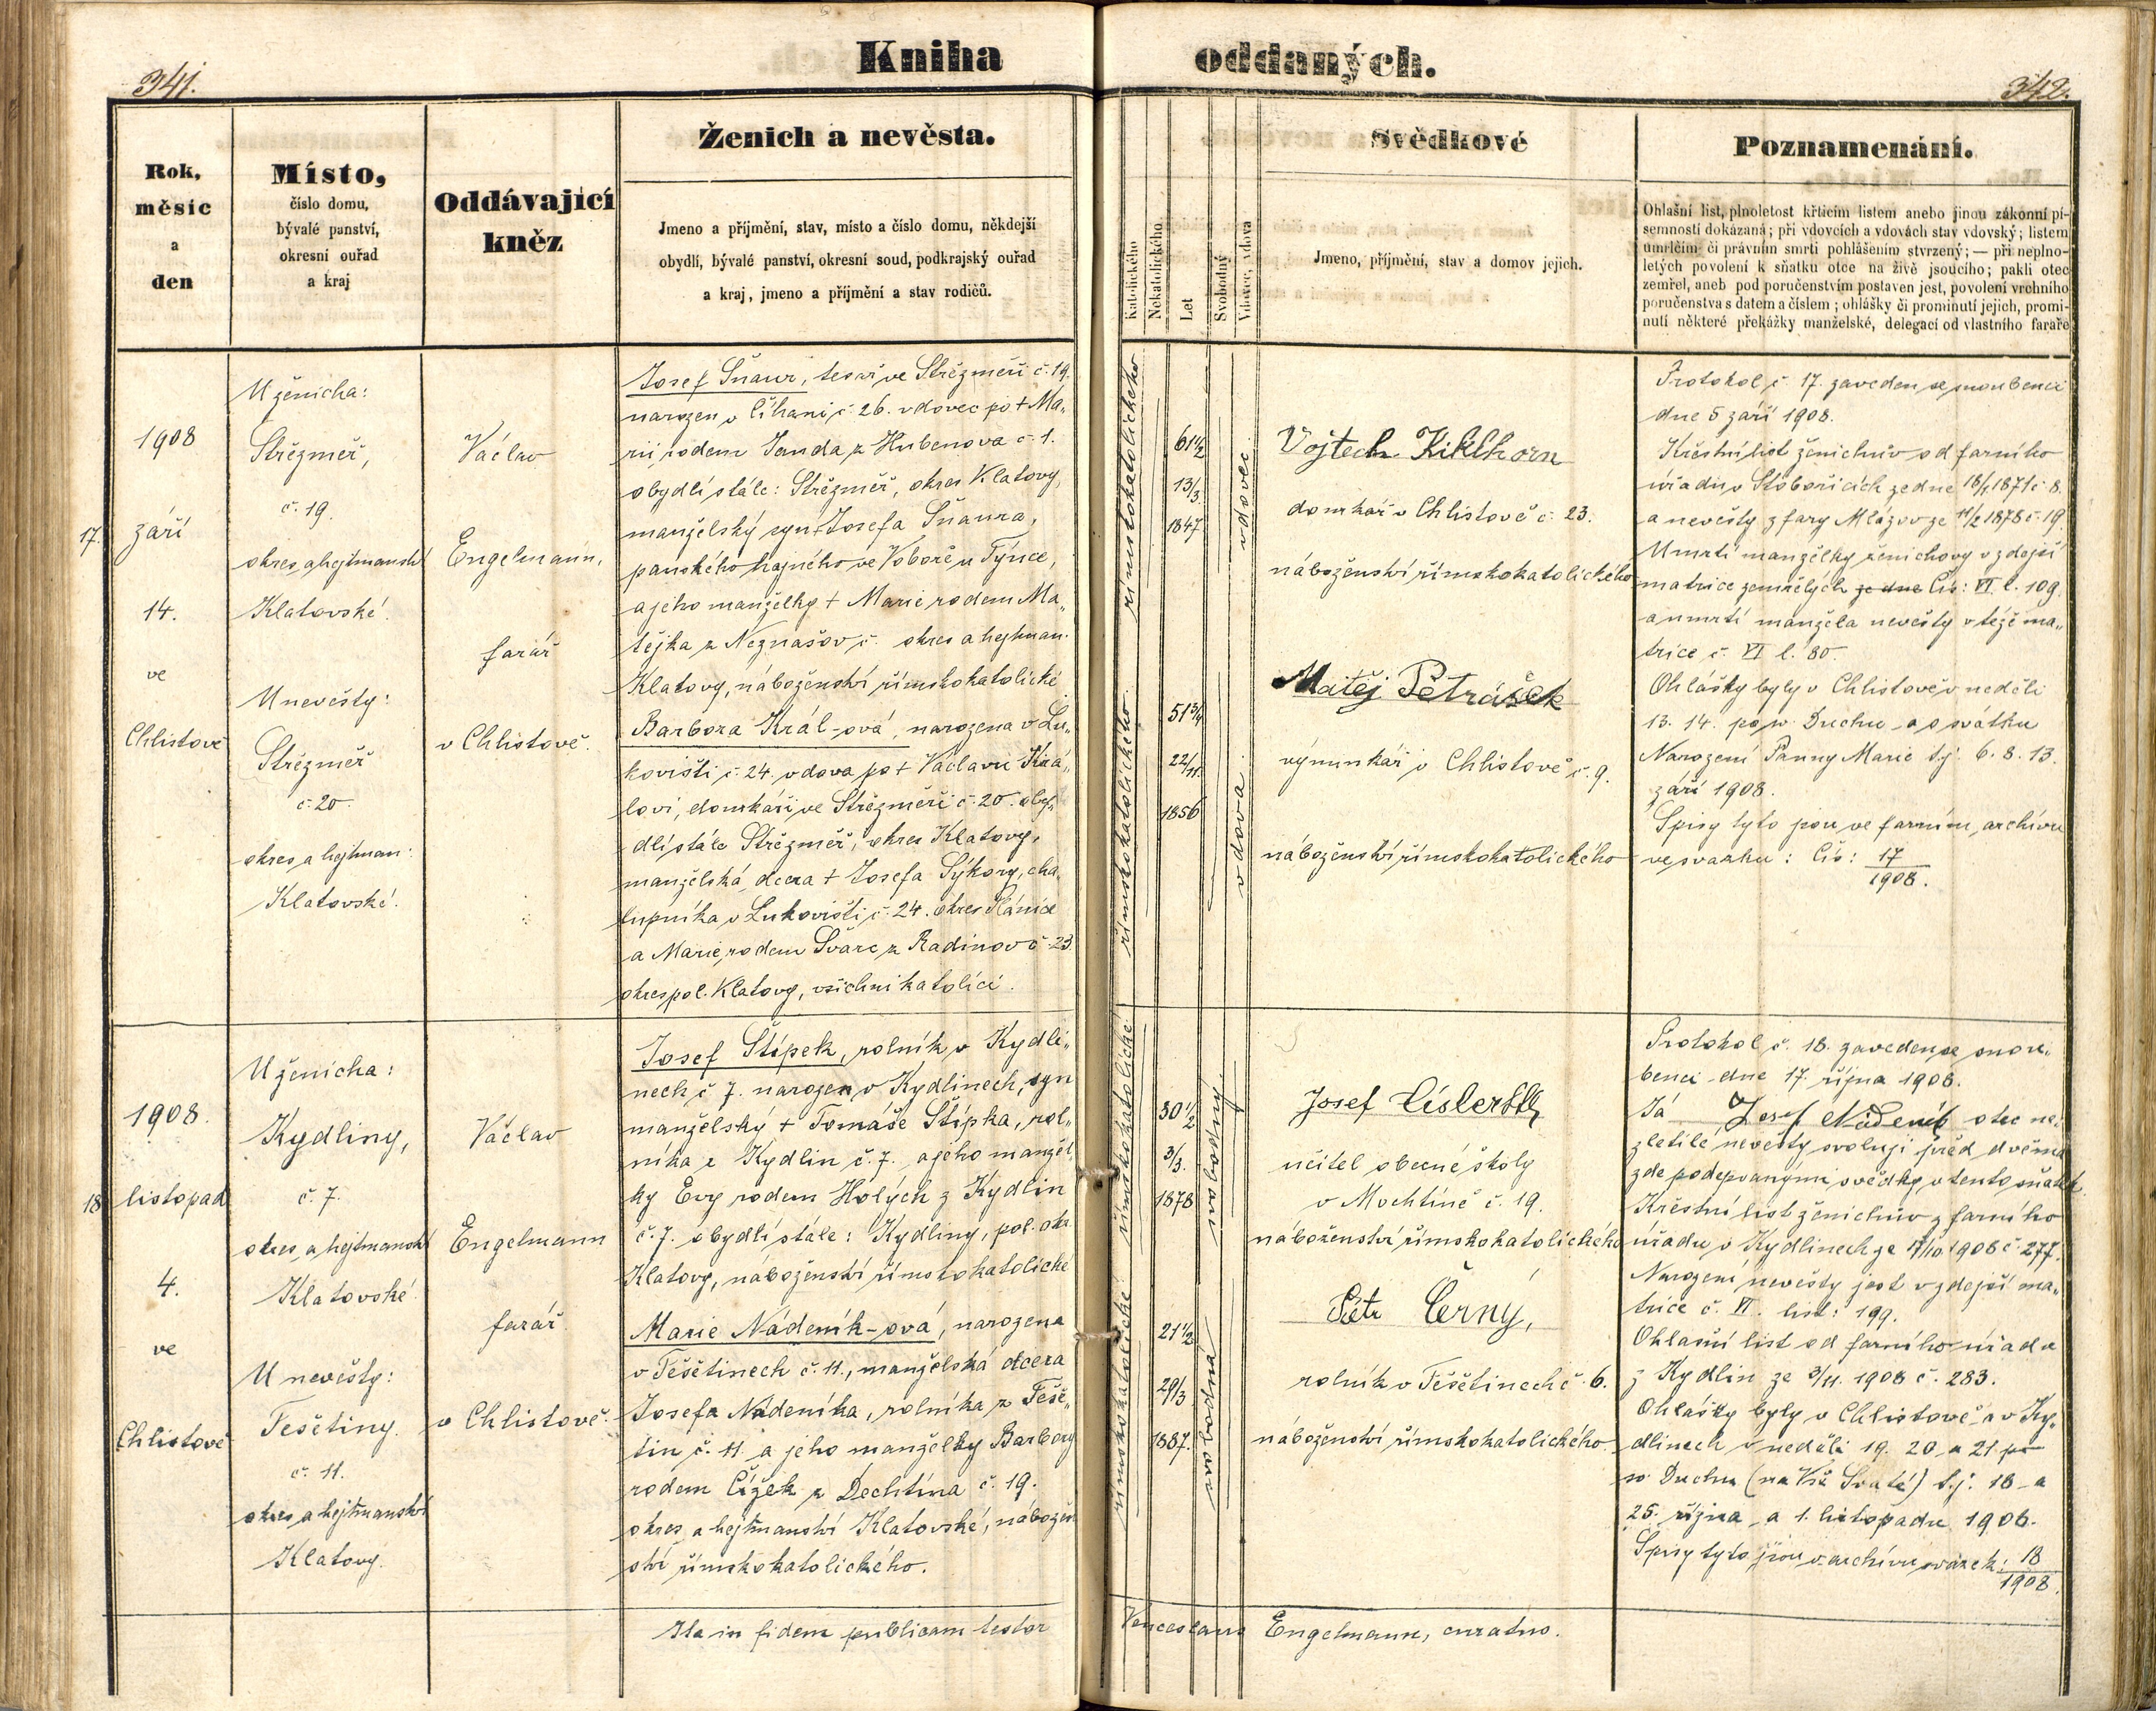 341.
Kniha oddaných.
342.
Rok,
měsíc
a
den
Místo,
číslo domu,
bývalé panství,
okresní ouřad
a kraj
Oddávající
kněz
Ženich a nevěsta.
Jmeno a příjmění, stav, místo a číslo domu, někdejší
obydlí, bývalé panství, okresní soud, podkrajský ouřad
a kraj, jmeno a příjmění a stav rodičů.
Katolického
Nekatolického
Let
Svobodný
Vdovec, vdova
Svědkové
Jmeno, příjmění, stav a domov jejich.
Poznamenání.
Ohlašní list, plnoletost křticím listem anebo jinou zákonní pí-
semností dokázaná; při vdovcích a vdovách stav vdovský; listem
úmrlčím či právním smrti pohlášením stvrzený; — při neplno-
letých povolení k sňatku otce na živě jsoucího; pakli otec
zemřel, aneb pod poručenstvím postaven jest, povolení vrchního
poručenstva s datem a číslem; ohlášky či prominutí jejich, promi-
nutí některé překážky manželské, delegací od vlastního faráře
17.
1908
září
14.
ve
Chlistově
U ženicha:
Střežměř,
č. 19.
okres a hejtmanství
Klatovské.
U nevěsty:
Střežměř
č. 20.
okres a hejtman:
Klatovské.
Václav
Engelmann,
farář
v Chlistově.
Josef Šnaur, tesař ve Střežměři č. 19.
narozen v Číhani č. 26. vdovec po † Ma„
rii, rodem Janda z Hubenova č. 1.
obydlí stále: Střežměř, okres Klatovy,
manželský syn † Josefa Šnaura,
panského hajného ve Voboře u Týnce,
a jeho manželky † Marie rodem Ma„
tějka z Neznašov č. okres a hejtman.
Klatovy, náboženství římskokatolické
Barbora Král-ová, narozena v Lu„
kovišti č. 24. vdova po † Václavu Krá„
lovi, domkáři ve Střežměři č. 20. oby„
dlí stále Střežměř, okres Klatovy,
manželská dcera † Josefa Sýkory, cha„
lupníka v Lukovišti č. 24. okres Plánice
a Marie, rodem Švarc z Radinov č. 23
okres pol. Klatovy, všichni katolíci.
římskokatolického
61 1/2
13/3.
1847
vdovec
římskokatolického
51 3/4
22/11.
1856
vdova
Vojtech Kiklhorn
domkář v Chlistově č. 23.
náboženství římskokatolického
Matěj Petrášek
výminkář v Chlistově č. 9.
náboženství římskokatolického
Protokol č. 17. zaveden se snoubenci
dne 5 září 1908.
Křestní list ženichův od farního
úřadu v Stobořicích ze dne 18/1 1871 č. 8.
a nevěsty z fary Mlázov ze 11/2 1878 č. 19.
Úmrtí manželky ženichovy v zdejší
matrice zemřelých ze dne Čís: VI l. 109.
a úmrtí manžela nevěsty v téže ma„
trice č. VI l. 80.
Ohlášky byly v Chlistově v neděli
13. 14. po sv. Duchu a o svátku
Narození Panny Marie t.j. 6. 8. 13.
září 1908.
Spisy tyto jsou ve farním archívu
ve svazku: Čís: 17/1908.
18
1908.
listopad
4.
ve
Chlistově
U ženicha:
Kydliny,
č. 7.
okres a hejtmanství
Klatovské
U nevěsty:
Tešetiny.
č. 11.
okres a hejtmanství
Klatovy.
Václav
Engelmann
farář.
v Chlistově.
Josef Štípek, rolník v Kydli„
nech č. 7. narozen v Kydlinech, syn
manželský † Tomáše Štípka, rol„
níka z Kydlin č. 7. a jeho manžel„
ky Evy rodem Holých z Kydlin
č. 7. obydlí stále: Kydliny, pol. okr.
Klatovy, náboženství římskokatolické
Marie Nádeník-ová, narozena
v Tešetinech č. 11., manželská dcera
Josefa Nádeníka, rolníka z Teše„
tin č. 11. a jeho manželky Barbory
rodem Čížek z Dechtína č. 19.
okres a hejtmanství Klatovské, nábožen
ství římskokatolického.
římskokatolické
30 1/2
3/3.
1878
svobodný.
římskokatolické
21 1/2
29/3
1887.
svobodná
Josef Císler
učitel obecné školy
v Mochtíně č. 19.
náboženství římskokatolického
Petr Černý,
rolník v Tešetinech č. 6.
náboženství římskokatolického.
Protokol č. 18. zaveden se snou„
benci dne 17. října 1908.
Já Josef Nádeník otec ne„
zletilé nevěsty svoluji před dvěma
zde podepsanými svědky v tento sňatek.
Křestní list ženichův z farního
úřadu v Kydlinech ze 17/10 1908 č. 277.
Narození nevěsty jest v zdejší ma„
trice č. VI. list: 199.
Ohlašní list od farního úřadu
z Kydlin ze 3/11. 1908 č. 283.
Ohlášky byly v Chlistově a v Ky„
dlinech v neděli 19. 20. a 21. po
sv. Duchu (na Vše Svaté) t.j. 18. a
25. října a 1. listopadu 1908.
Spisy tyto jsou v archívu svazek: 18/1908.
Ita in fidem publicam testor Venceslaus Engelmann, curatus.